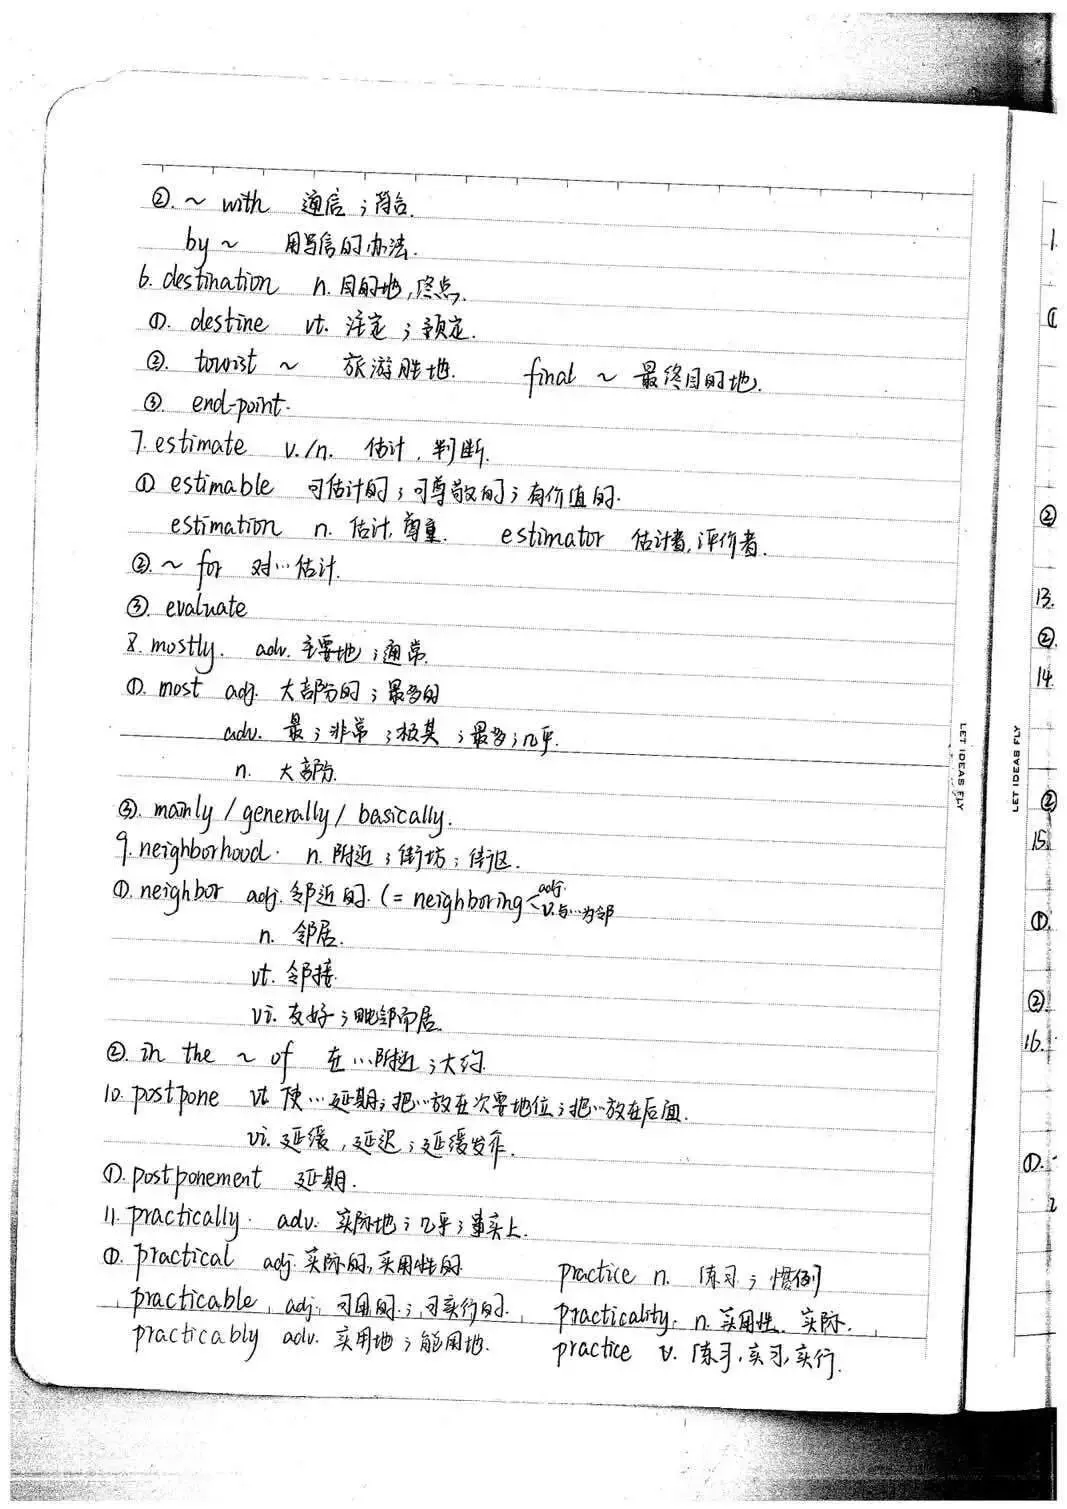 ②. ~ with 通信；符合.
by ~ 用写信的办法.
6. destination n. 目的地,终点.
①. destine vt. 注定；预定.
②. tourist ~ 旅游胜地. final ~ 最终目的地.
③. end-point.
7. estimate v./n. 估计,判断.
① estimable 可估计的；可尊敬的；有价值的.
estimation n. 估计,尊重. estimator 估计者,评价者.
②. ~ for 对…估计.
③. evaluate
8. mostly. adv. 主要地；通常.
①. most adj. 大部分的；最多的
adv. 最；非常；极其；最多；几乎.
n. 大部分.
③. mainly / generally / basically.
9. neighborhood. n. 附近；街坊；街区.
①. neighbor adj. 邻近的. (= neighboring < adj.
v. 与…为邻
n. 邻居.
vt. 邻接.
vi. 友好；毗邻而居.
②. in the ~ of 在…附近；大约.
10. postpone vt. 使…延期；把…放在次要地位；把…放在后面.
vi. 延缓,延迟；延缓发作.
①. postponement 延期.
11. practically. adv. 实际地；几乎；事实上.
①. practical adj. 实际的,实用性的 practice n. 练习；惯例
practicable, adj. 可用的；可实行的. practicality. n. 实用性. 实际.
practicably adv. 实用地；能用地. practice v. 练习,实习,实行.
LET IDEAS FLY
LET IDEAS FLY
1.
①
②
13.
②.
14.
②
15.
①.
②
16.
①.
2